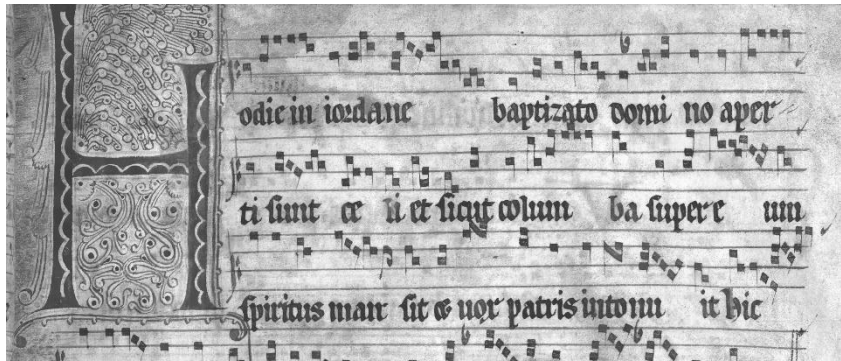 Hodie in iordane baptizato domi no aper
ti sunt ce li et sicut colum ba super e um
spiritus man sit et uox patris intonu it hic